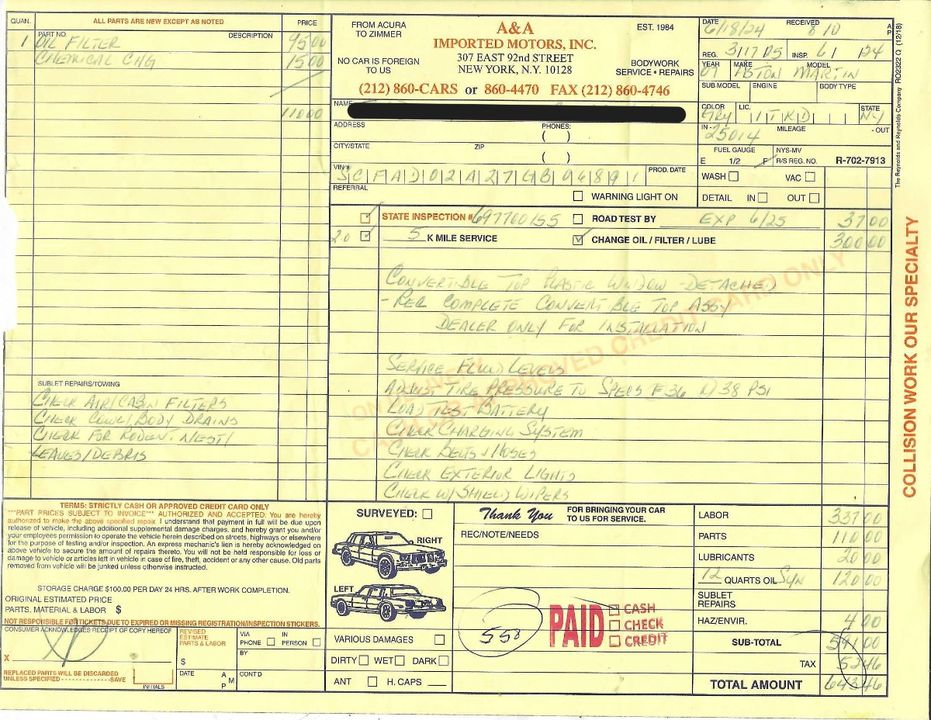 QUAN. ALL PARTS ARE NEW EXCEPT AS NOTED PRICE
PART NO. DESCRIPTION
1 OIL FILTER 95 00
CHEMICAL CHG 15 00
110 00
FROM ACURA TO ZIMMER
NO CAR IS FOREIGN TO US
A&A
IMPORTED MOTORS, INC.
307 EAST 92nd STREET
NEW YORK, N.Y. 10128
EST. 1984
BODYWORK
SERVICE • REPAIRS
(212) 860-CARS or 860-4470 FAX (212) 860-4746
DATE 6/18/24 RECEIVED 8 10 A P
REG. 3117 DS INSP. 61
YEAR 07 MAKE ASTON MARTIN MODEL
SUB MODEL ENGINE BODY TYPE
COLOR GRY LIC. STATE NY
IN - 25014 MILEAGE - OUT
FUEL GAUGE E 1/2 F
NYS-MV R/S REG. NO. R-702-7913
WASH VAC
DETAIL IN OUT
NAME
ADDRESS PHONES: ( )
CITY/STATE ZIP ( )
VIN# SCFAD02A27GB06891 PROD. DATE
REFERRAL WARNING LIGHT ON
STATE INSPECTION # 697700155 ROAD TEST BY EXP 6/25 37 00
20 5 K MILE SERVICE CHANGE OIL / FILTER / LUBE 300 00
CONVERTIBLE TOP PLASTIC WINDOW - DETACHED
- REQ COMPLETE CONVERTIBLE TOP ASSY
DEALER ONLY FOR INSTALLATION
SERVICE FLUID LEVELS
ADJUST TIRE PRESSURE TO SPECS F36 R/38 PSI
LOAD TEST BATTERY
CHECK CHARGING SYSTEM
CHECK BELTS & HOSES
CHECK EXTERIOR LIGHTS
CHECK W/SHIELD WIPERS
SUBLET REPAIRS/TOWING
CHECK AIR/CABIN FILTERS
CHECK COWL/BODY DRAINS
CHECK FOR RODENT NEST/
LEAVES/DEBRIS
APPROVED CREDIT CARD ONLY
COLLISION WORK OUR SPECIALTY
The Reynolds and Reynolds Company RO22322 Q (12/18)
TERMS: STRICTLY CASH OR APPROVED CREDIT CARD ONLY
"""PART PRICES SUBJECT TO INVOICE""" AUTHORIZED AND ACCEPTED: You are hereby
authorized to make the above specified repair. I understand that payment in full will be due upon
release of vehicle, including additional supplemental damage charges, and hereby grant you and/or
your employees permission to operate the vehicle herein described on streets, highways or elsewhere
for the purpose of testing and/or inspection. An express mechanic's lien is hereby acknowledged on
above vehicle to secure the amount of repairs thereto. You will not be held responsible for loss or
damage to vehicle or articles left in vehicle in case of fire, theft, accident or any other cause. Old parts
removed from vehicle will be junked unless otherwise instructed.
STORAGE CHARGE $100.00 PER DAY 24 HRS. AFTER WORK COMPLETION.
ORIGINAL ESTIMATED PRICE
PARTS, MATERIAL & LABOR $
NOT RESPONSIBLE FOR TICKETS DUE TO EXPIRED OR MISSING REGISTRATION/INSPECTION STICKERS.
CONSUMER ACKNOWLEDGES RECEIPT OF COPY HEREOF
X
REPLACED PARTS WILL BE DISCARDED UNLESS SPECIFIED SAVE INITIALS
REVISED ESTIMATE PARTS & LABOR $
VIA PHONE IN PERSON
BY
DATE A P M CONT'D
SURVEYED:
RIGHT
LEFT
VARIOUS DAMAGES
DIRTY WET DARK
ANT H. CAPS
Thank You FOR BRINGING YOUR CAR TO US FOR SERVICE.
REC/NOTE/NEEDS
558
PAID CASH CHECK CREDIT
LABOR 337 00
PARTS 110 00
LUBRICANTS 20 00
12 QUARTS OIL Syn 120 00
SUBLET REPAIRS
HAZ/ENVIR. 4 00
SUB-TOTAL 591 00
TAX 52 46
TOTAL AMOUNT 643 46